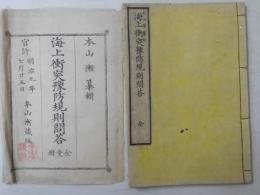 本山漸纂輯
海上衝突豫防規則問答
全壹冊
官許明治九年
七月廿五日
本山漸蔵版
海上衝突豫防規則問答
全